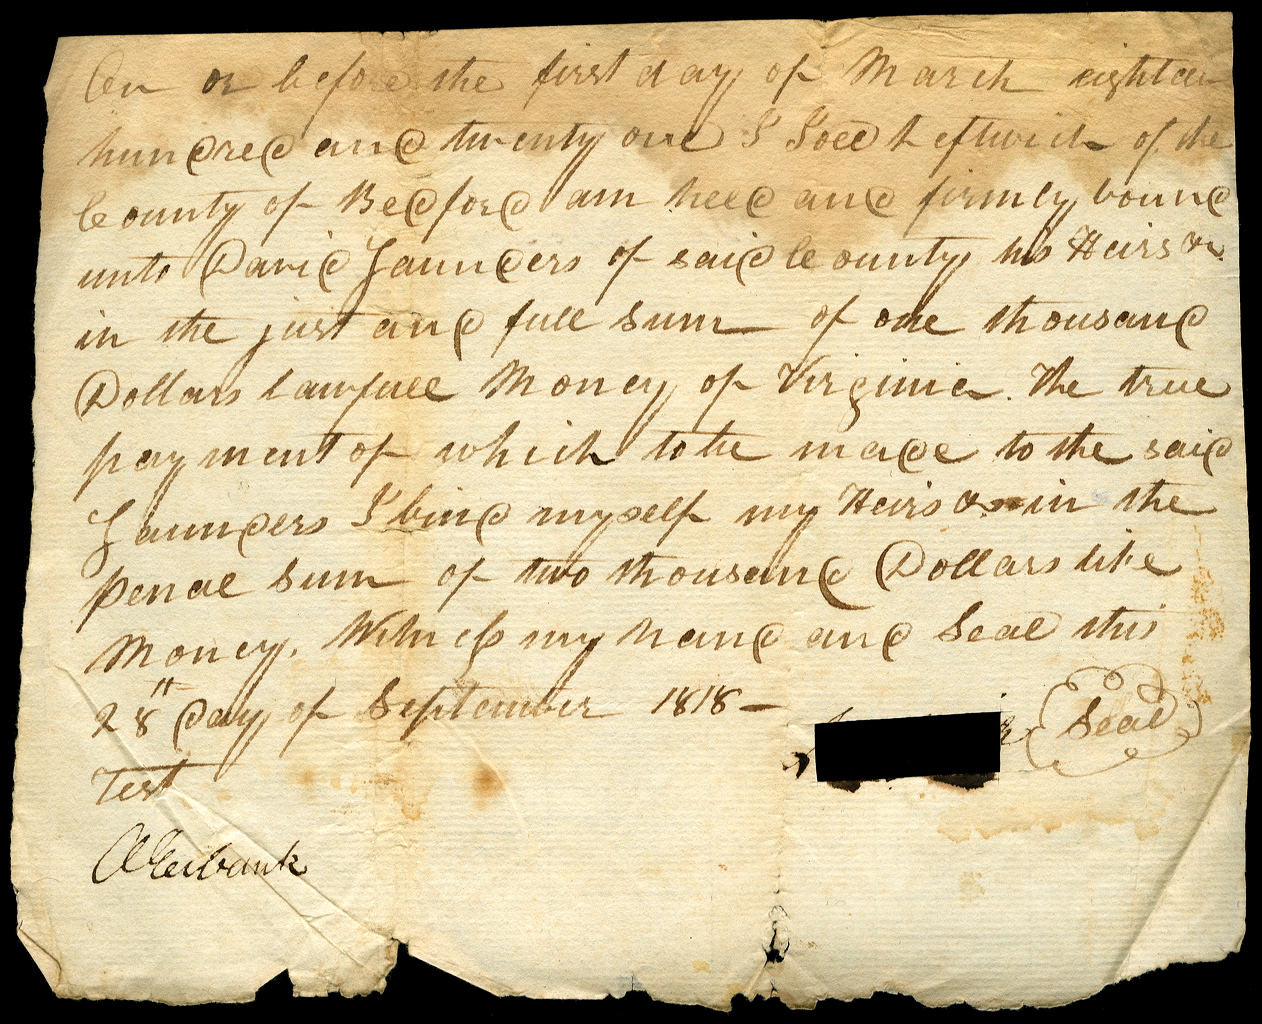 On or before the first day of March eighteen
hundred and twenty one I Joel Leftwich of the
County of Bedford am held and firmly bound
unto David Saunders of said County his Heirs &c.
in the just and full sum of one thousand
Dollars Lawfull Money of Virginia. The true
payment of which to be made to the said
Saunders I bind myself my Heirs &c in the
penal sum of two thousand Dollars like
Money. Witness my hand and Seal this
28th Day of September 1818 —
Seal
Test
Eubank